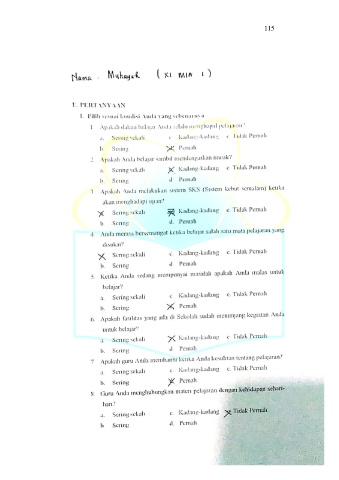 115
Nama : Muhayek (XI MIA 1)
E. PERTANYAAN
1. Pilih sesuai kondisi Anda yang sebenarnya
1. Apakah dalam belajar Anda selalu menghapal pelajaran?
a. Sering sekali c. Kadang-kadang e. Tidak Pernah
b. Sering d. Pernah
2. Apakah Anda belajar sambil mendengarkan musik?
a. Sering sekali c. Kadang-kadang e. Tidak Pernah
b. Sering d. Pernah
3. Apakah Anda melakukan sistem SKS (System kebut semalam) ketika
akan menghadapi ujian?
a. Sering sekali c. Kadang-kadang e. Tidak Pernah
b. Sering d. Pernah
4. Anda merasa bersemangat ketika belajar salah satu mata pelajaran yang
disukai?
Sering sekali c. Kadang-kadang e. Tidak Pernah
b. Sering d. Pernah
5. Ketika Anda sedang mempunyai masalah apakah Anda malas untuk
belajar?
a. Sering sekali c. Kadang-kadang e. Tidak Pernah
b. Sering Pernah
6. Apakah fasilitas yang ada di Sekolah sudah menunjang kegiatan Anda
untuk belajar?
a. Sering sekali Kadang-kadang e. Tidak Pernah
b. Sering d. Pernah
7. Apakah guru Anda membantu ketika Anda kesulitan tentang pelajaran?
a. Sering sekali c. Kadang-kadang e. Tidak Pernah
b. Sering Pernah
8. Guru Anda menghubungkan materi pelajaran dengan kehidupan sehari-
hari?
a. Sering sekali c. Kadang-kadang Tidak Pernah
b. Sering d. Pernah